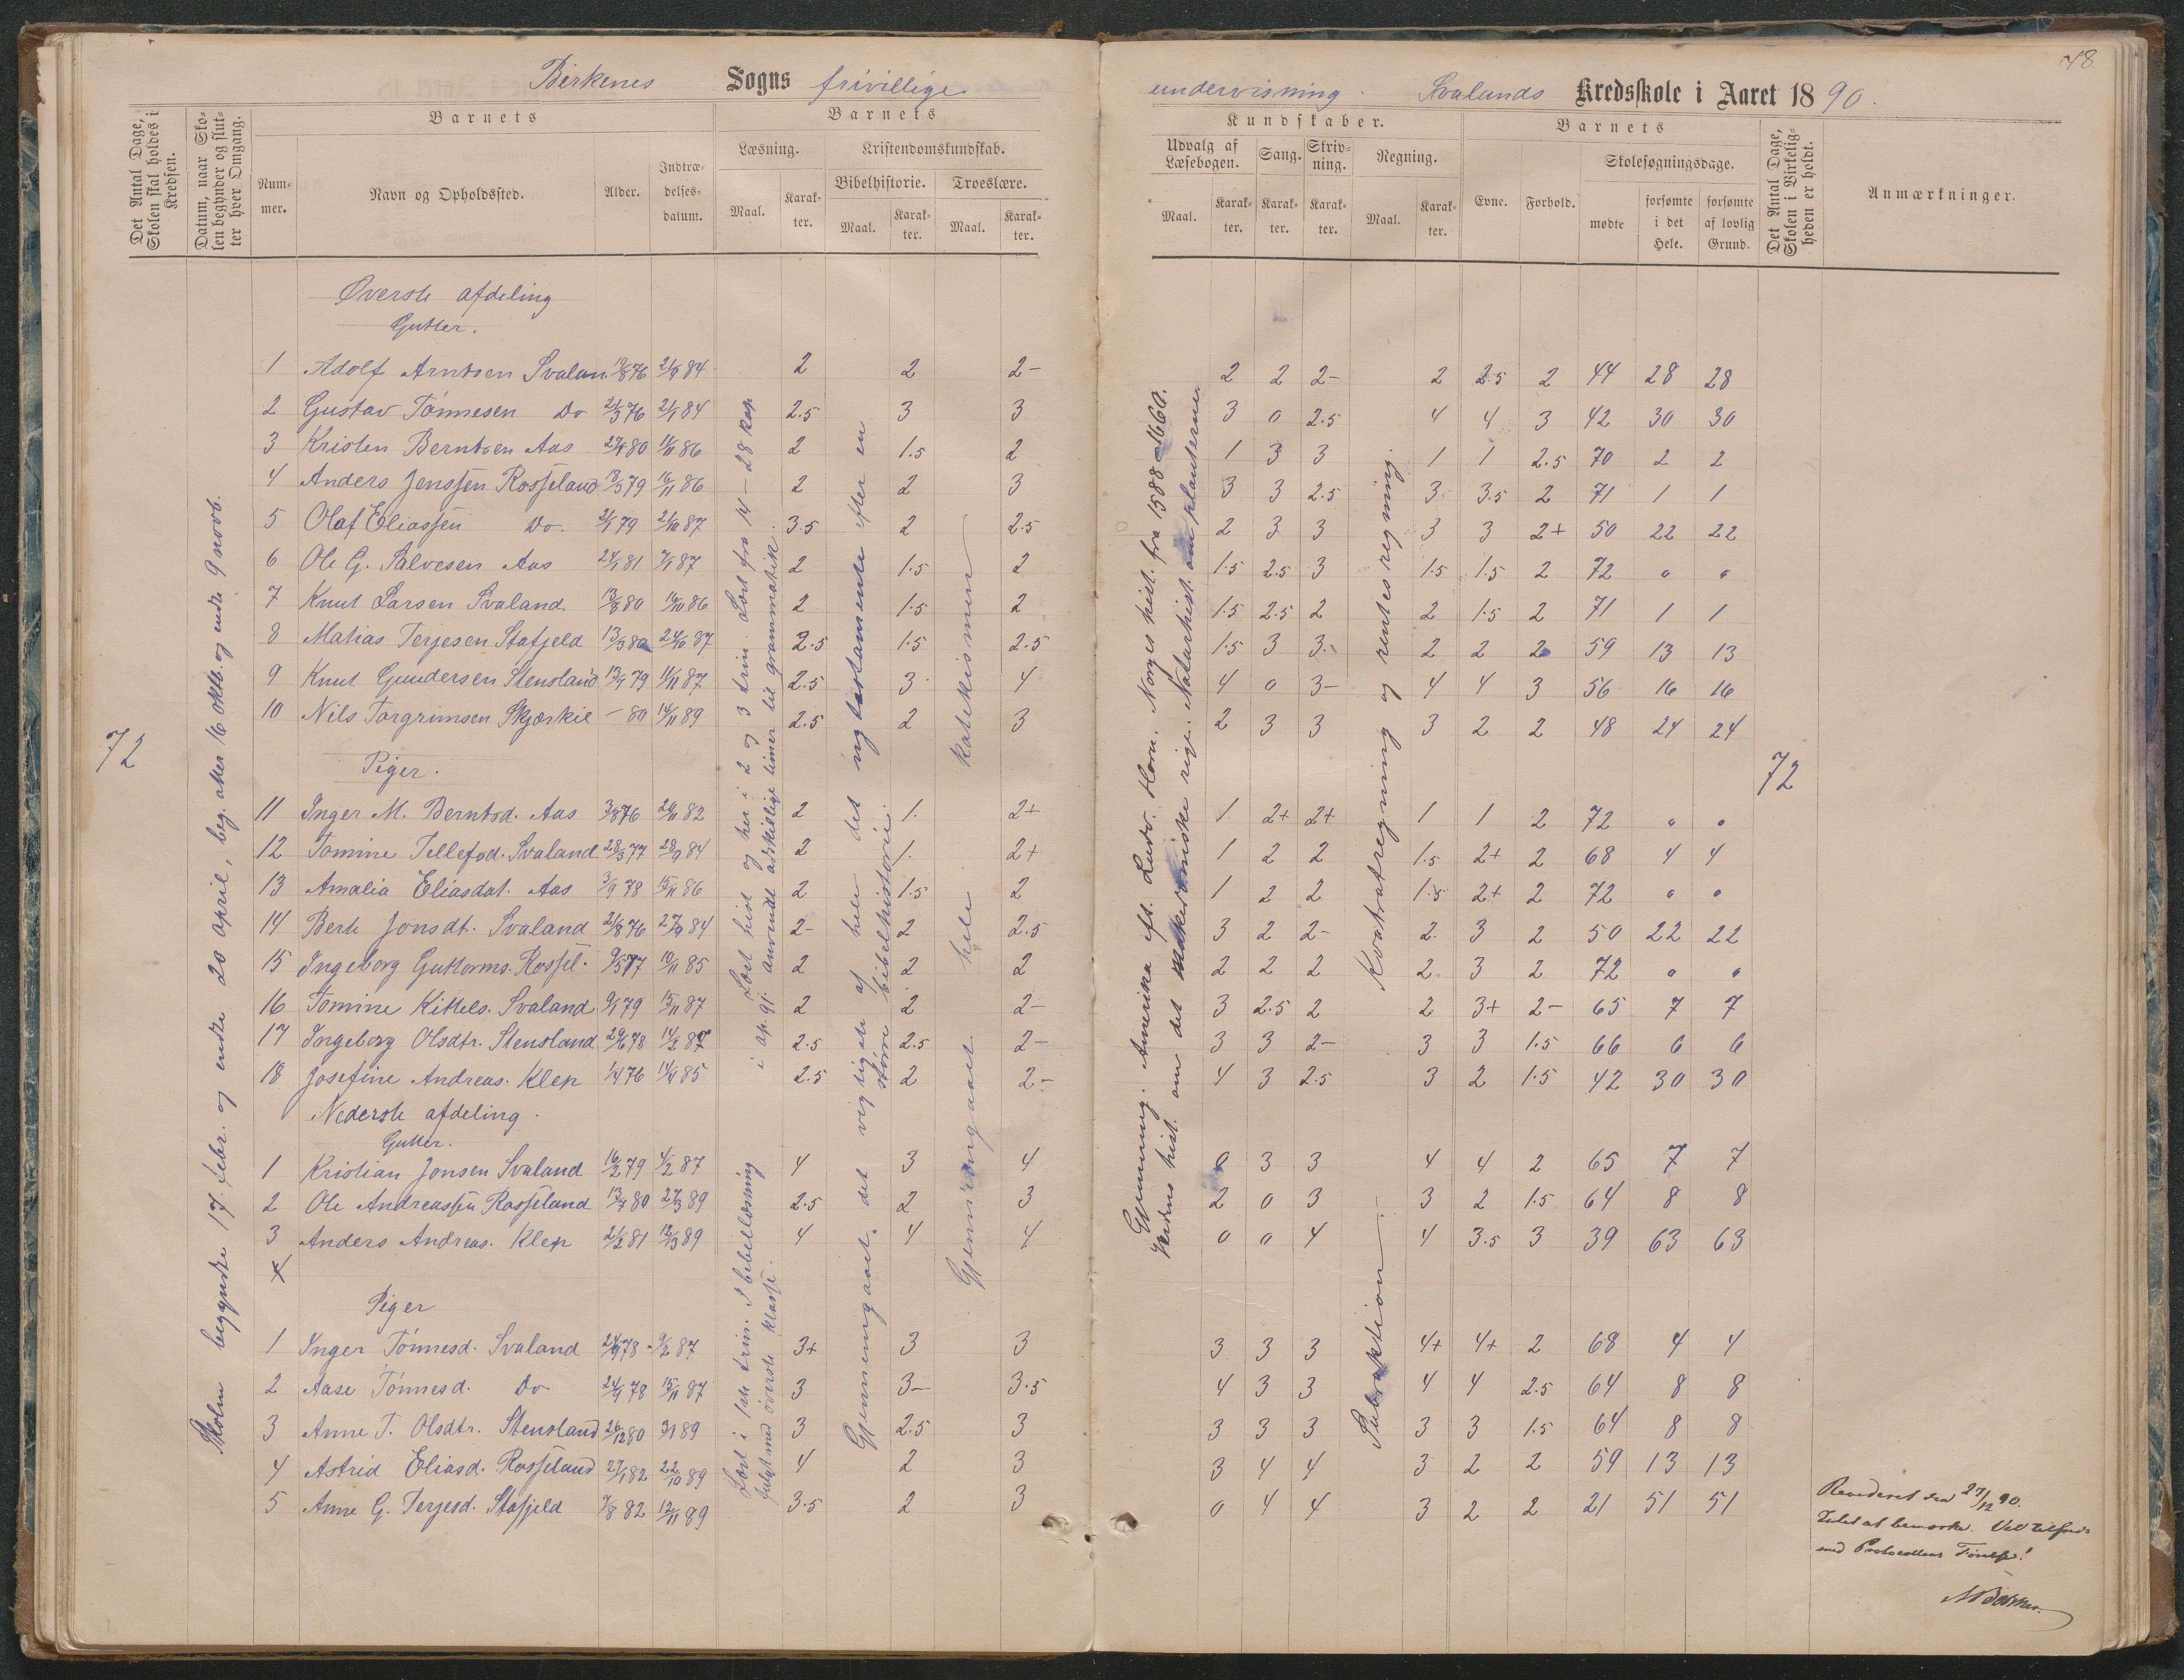 48
Birkenes Sogns frivillige undervisning. Svalands Kredsskole i Aaret 1890.
Det Antal Dage, Skolen skal holdes i Kredsen.
Datum, naar Skolen begynder og slutter hver Omgang.
Barnets
Nummer.
Navn og Opholdssted.
Alder.
Indtrædelsesdatum.
Barnets
Læsning.
Maal.
Karakter.
Kristendomskundskab.
Bibelhistorie.
Maal.
Karakter.
Troeslære.
Maal.
Karakter.
Kundskaber.
Udvalg af Læsebogen.
Maal.
Karakter.
Sang.
Karakter.
Skrivning.
Karakter.
Regning.
Maal.
Karakter.
Barnets
Evne.
Forhold.
Skolesøgningsdage.
mødte
forsømte i det Hele.
forsømte af lovlig Grund.
Det Antal Dage, Skolen i Virkeligheden er holdt.
Anmærkninger.
72
Skolen begyndte 17 febr. og endte 20 april, beg. atter 16 oktb. og endte 9 novb.
Læst hist og her i 2 og 3 trin. Læst fra 14 – 28 kap.
i ap. gj. anvendt adskillige timer til grammatik.
Gjennemgaaet det vigtigste af hele det ny testamente efter en
større bibelhistorie.
Gjennemgaaet hele katekismen
Gjennemg. Amerika eft. Ludv. Horn. Norges hist. fra 1588–1660.
Jordens hist. om det rige. Naturhist. om planterne.
Kvatratregning og rentesregning.
72
Øverste afdeling
Gutter.
1 Adolf Arntsen Svalan 19/8 76 21/9 84 2 2 2- 2 2 2- 2 2.5 2 44 28 28
2 Gustav Tønnesen Do 21/3 76 21/1 84 2.5 3 3 3 0 2.5 4 4 3 42 30 30
3 Kristen Berntsen Aas 27/4 80 11/11 86 2 1.5 2 1 3 3 1 1 2.5 70 2 2
4 Anders Jenssen Rosseland 18/3 79 16/11 86 2 2 3 3 3 2.5 3 3.5 2 71 1 1
5 Olaf Eliassen Do. 21/1 79 21/10 87 3.5 2 2.5 2 3 3 3 3 2+ 50 22 22
6 Ole G. Salvesen Aas 24/1 81 7/1 87 2 1.5 2 1.5 2.5 3 1.5 1.5 2 72 " "
7 Knut Larsen Svaland 13/8 80 14/10 86 2 1.5 2 1.5 2.5 2 2 1.5 2 71 1 1
8 Matias Terjesen Stafjeld 13/3 80 24/10 87 2.5 1.5 2.5 1.5 3 3- 2 2 2 59 13 13
9 Knut Gundersen Stensland 13/4 79 11/11 87 2.5 3 4 4 0 3- 4 4 3 56 16 16
10 Nils Torgrimsen Skjærkil – 80 14/11 89 2.5 2 3 2 3 3 3 2 2 48 24 24
Piger.
11 Inger M. Berntsd. Aas 3/8 76 24/11 82 2 1. 2+ 1 2+ 2+ 1 1 2 72 " "
12 Tomine Tellefsd. Svaland 28/3 77 29/9 84 2 1. 2+ 1 2 2 1.5 2+ 2 68 4 4
13 Amalia Eliasdat. Aas 3/9 78 15/11 86 2 1.5 2 1 2 2 1.5 2+ 2 72 " "
14 Berte Jonsdt. Svaland 21/8 76 27/9 84 2- 2 2.5 3 2 2- 2. 3 2 50 22 22
15 Ingeborg Guttorms. Rossel. 9/5 77 10/11 85 2 2 2 2 2 2 2. 3 2 72 " "
16 Tomine Kittels. Svaland 9/1 79 15/11 87 2 2 2- 3 2.5 2 2 3+ 2- 65 7 7
17 Ingeborg Olsdtr. Stensland 29/6 78 14/2 87 2.5 2.5 2- 3 3 2- 3 3 1.5 66 6 6
18 Josefine Andreas. Klep 1/4 76 14/4 85 2.5 2 2- 4 3 2.5 3 2 1.5 42 30 30
Nederste afdeling.
Gutter.
Læst i 1ste trin. I bibellæsning
fulgt med øverste klasse.
Subtraktion
1 Kristian Jonsen Svaland 16/2 79 4/2 87 4 3 4 0 3 3 4 4 2 65 7 7
2 Ole Andreassen Rosseland 13/7 80 27/3 89 2.5 2 3 2 0 3 3 2 1.5 64 8 8
3 Anders Andreas. Klep 21/2 81 12/3 89 4 4 4 0 0 4 4 3.5 3 39 63 63
Piger
1 Inger Tønnesd. Svaland 24/9 78 9/2 87 3+ 3 3 3 3 3 4+ 4+ 2 68 4 4
2 Aase Tønnesd. Do 24/9 78 15/11 87 3 3- 3.5 4 3 3 4 4 2.5 64 8 8
3 Anne T. Olsdtr. Stensland 26/12 80 3/1 89 3 2.5 3 3 3 3 3 3 1.5 64 8 8
4 Astrid Eliasd. Rosseland 27/1 82 22/10 89 4 2 3 3 4 4 3 2 2 59 13 13
5 Anne G. Terjesd. Stafjeld 7/8 82 12/11 89 3.5 2 3 0 4 4 3 2 2 21 51 51
Revideret den 27/12 90.
Intet at bemærke. Vel tilfreds
med Protocollens Førelse!